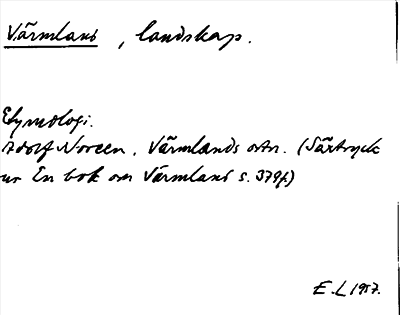 Värmland, landskap.
Etymologi.
Adolf Noreen, Värmlands ortn. (Särtryck
ur En bok om Värmland s. 379f.)
E.L 1957.